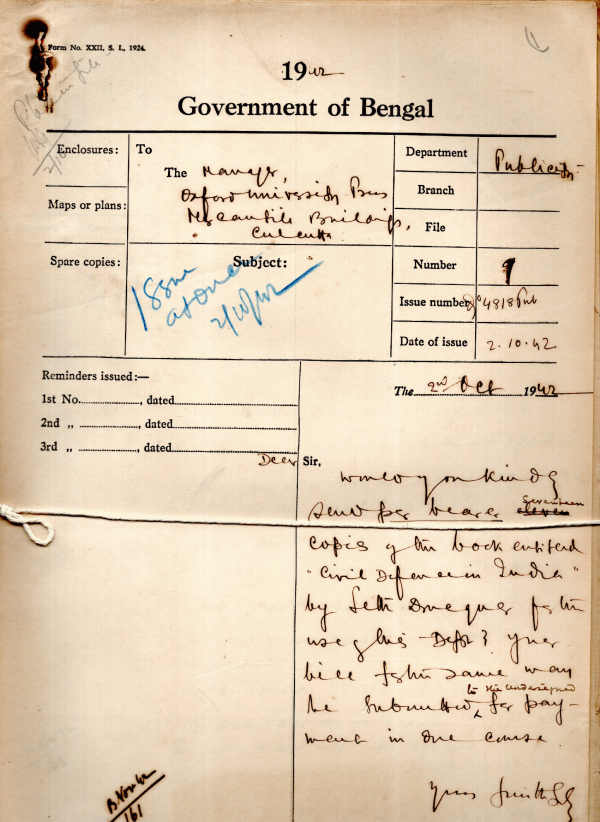 Form No. XXII, S. I., 1924.
1942
Government of Bengal
Enclosures:
Maps or plans:
Spare copies:
To
The Manager,
Oxford University Press
Mercantile Buildings,
Calcutta.
Subject:
Issue
at once
2/10/42
Department Publicity
Branch
File
Number 9
Issue number 4918 Pub
Date of issue 2.10.42
Reminders issued:—
1st No. , dated
2nd „ , dated
3rd „ , dated
The 2nd Oct 1942
Dear Sir,
Would you kindly
send per bearer eleven seventeen
copies of the book entitled
"Civil Defence in India"
by Seth for the
use of this Dept? Your
bill for the same may
be submitted to the undersigned for pay-
ment in due course.
Yours faithfully
161